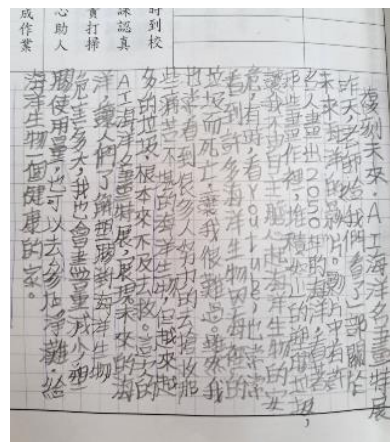 時到校
課認真
責打掃
心助人
成作業
復刻未來.AI海洋名畫特展
昨天,老師給我們看了一部關於
未來海洋的影片。影片中有許
名人畫出2050年的海洋,看著
那些畫作裡,堆積如山的塑膠垃圾,
讓我不自主的聯想起海洋生物的安
危。有時,看Youtube,也常常
看到許多海洋生物因海你的
垃圾而死亡,讓我很難過。雖然我
也常看到很多人努力的去拯救那
些痛苦不堪的海洋生物,但越來越
多的垃圾,根本來不及去救。這次的
AI海洋名畫特展,展現未來的海
洋,讓人們了解塑膠對海洋生物
危害多大,我也會盡量減少塑
膠使用量,也可以去參加淨灘,給
海洋生物一個健康的家。